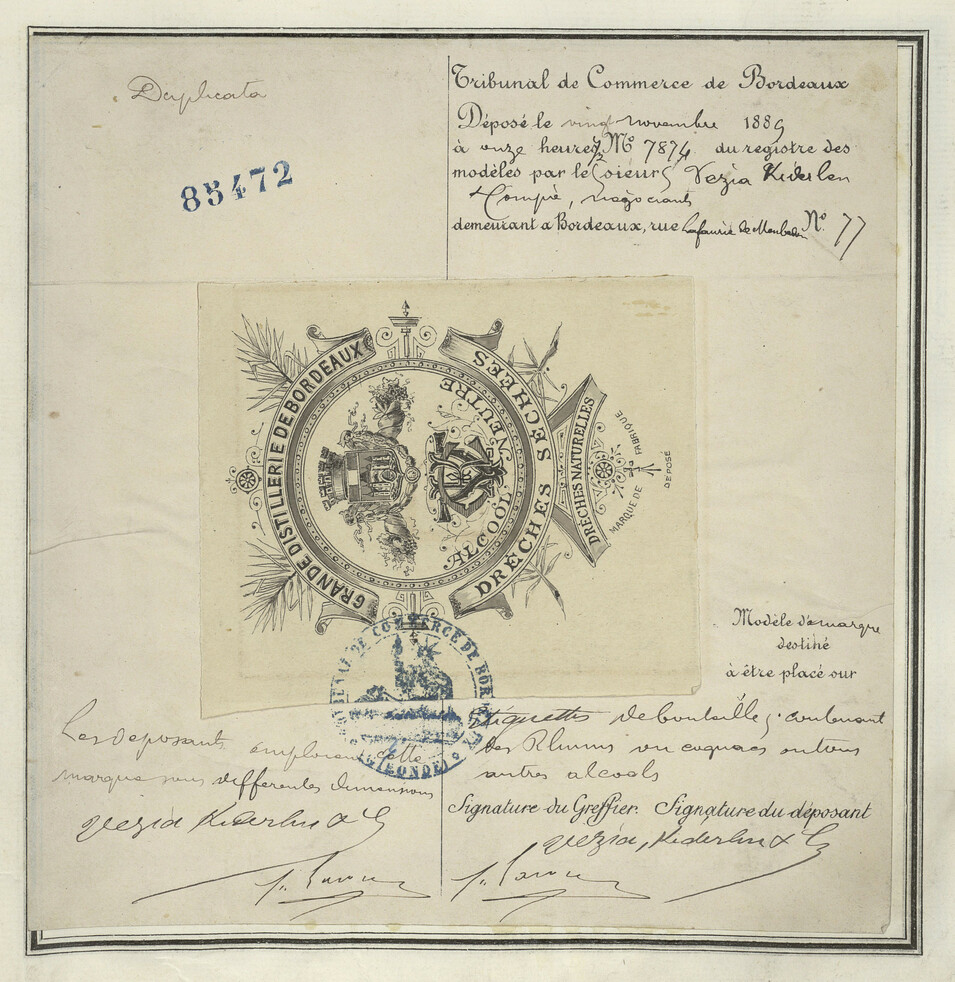 Duplicata
85472
Tribunal de Commerce de Bordeaux
Déposé le vingt novembre 1889
à onze heures 1/2 No 7874 du registre des
modèles par le Sieurs Vezia Kiderlen
Compie, négociants
demeurant a Bordeaux, rue Lafaurie de Monbadon No. 77
GRANDE DISTILLERIE DE BORDEAUX
ALCOOL NEUTRE
DRÈCHES SÉCHÉES
DRÈCHES NATURELLES
MARQUE DE FABRIQUE
DEPOSÉ
Modèle de marque
destiné
à être placé sur
étiquettes de bouteilles contenant
des Rhums ou cognacs ou tous
autres alcools
TRIBUNAL DE COMMERCE DE BORDEAUX
(GIRONDE)
Les deposants emploient cette
marque sous differentes dimensions
Vezia Kiderlen & Co
Signature du Greffier. Signature du déposant
Vezia, Kiderlen & Co